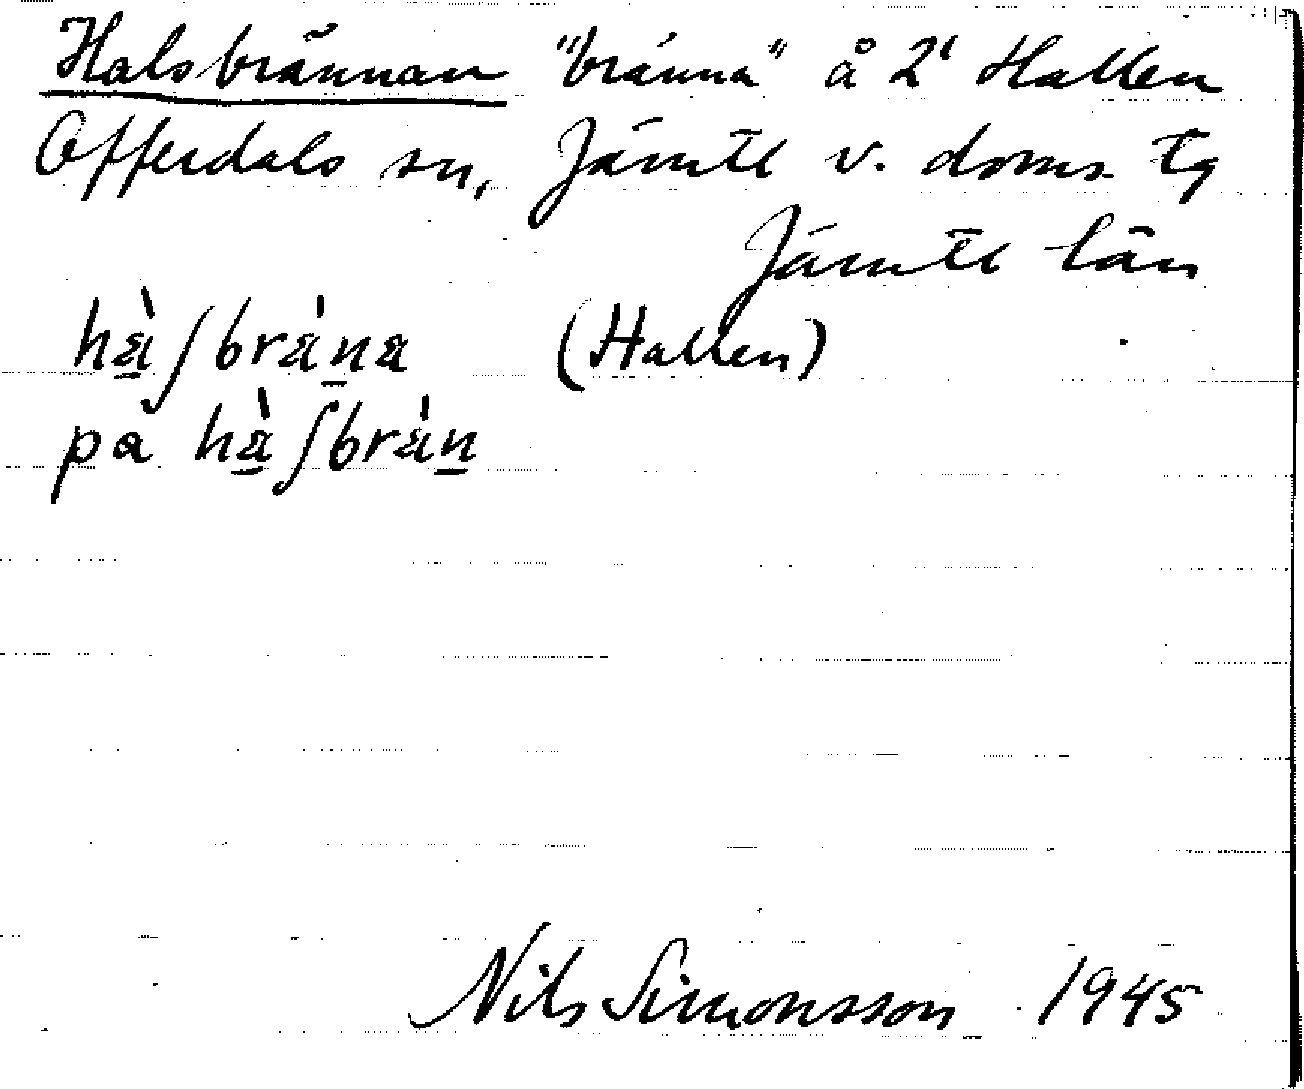 Halsbrännan "bränna" å 2¹ Hallen
Offerdals sn, Jämtl v. doms. tg
Jämtl län
hà̱ʃbrä̀ṉa (Hallen)
på hà̱ʃbrä̀ṉ
Nils Simonsson 1945